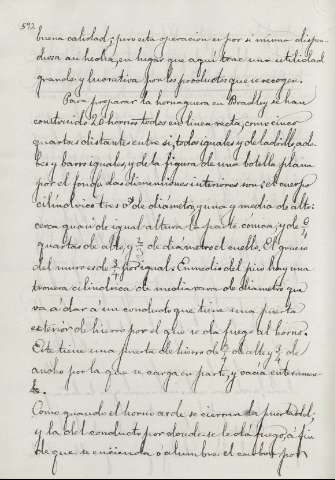 572
buena calidad; pero esta operacion es por si misma dispen-
diosa au hecha, en lugar que aqui trae una utilidad
grande y lucrativa por los productos que se recogen.
Para preparar la hornaguera en Bradley se han
construido 20 hornos todos en linea recta, con cinco
quartas distantes entre si, todos iguales y de ladrillo, ado-
bes y barro iguales, y de la figura de una botella plana
por el fondo: sus dimensiones interiores son: el cuerpo
cilindrico tres vs de diametro, y una y media de alto:
cerca quan de igual altura la parte conica; y de 6/4
quartas de alto, y 2/3 de diametro el cuello. El grueso
del muro es de 3/4 por igual. En medio del piso hay una
tronera cilindrica de media vara de diametro que
va á dar á un conducto que tiene una puerta
exterior de hierro por el que se da fuego al horno.
Este tiene una puerta de hierro de de alto y 3/4 de
ancho por la que se carga en parte, y vacia enteramen-
te.
Como quando el horno arde se cierran la puerta del,
y la del conducto por donde se le dá fuego, á fin
de que se encienda ó alumbre el carbon por